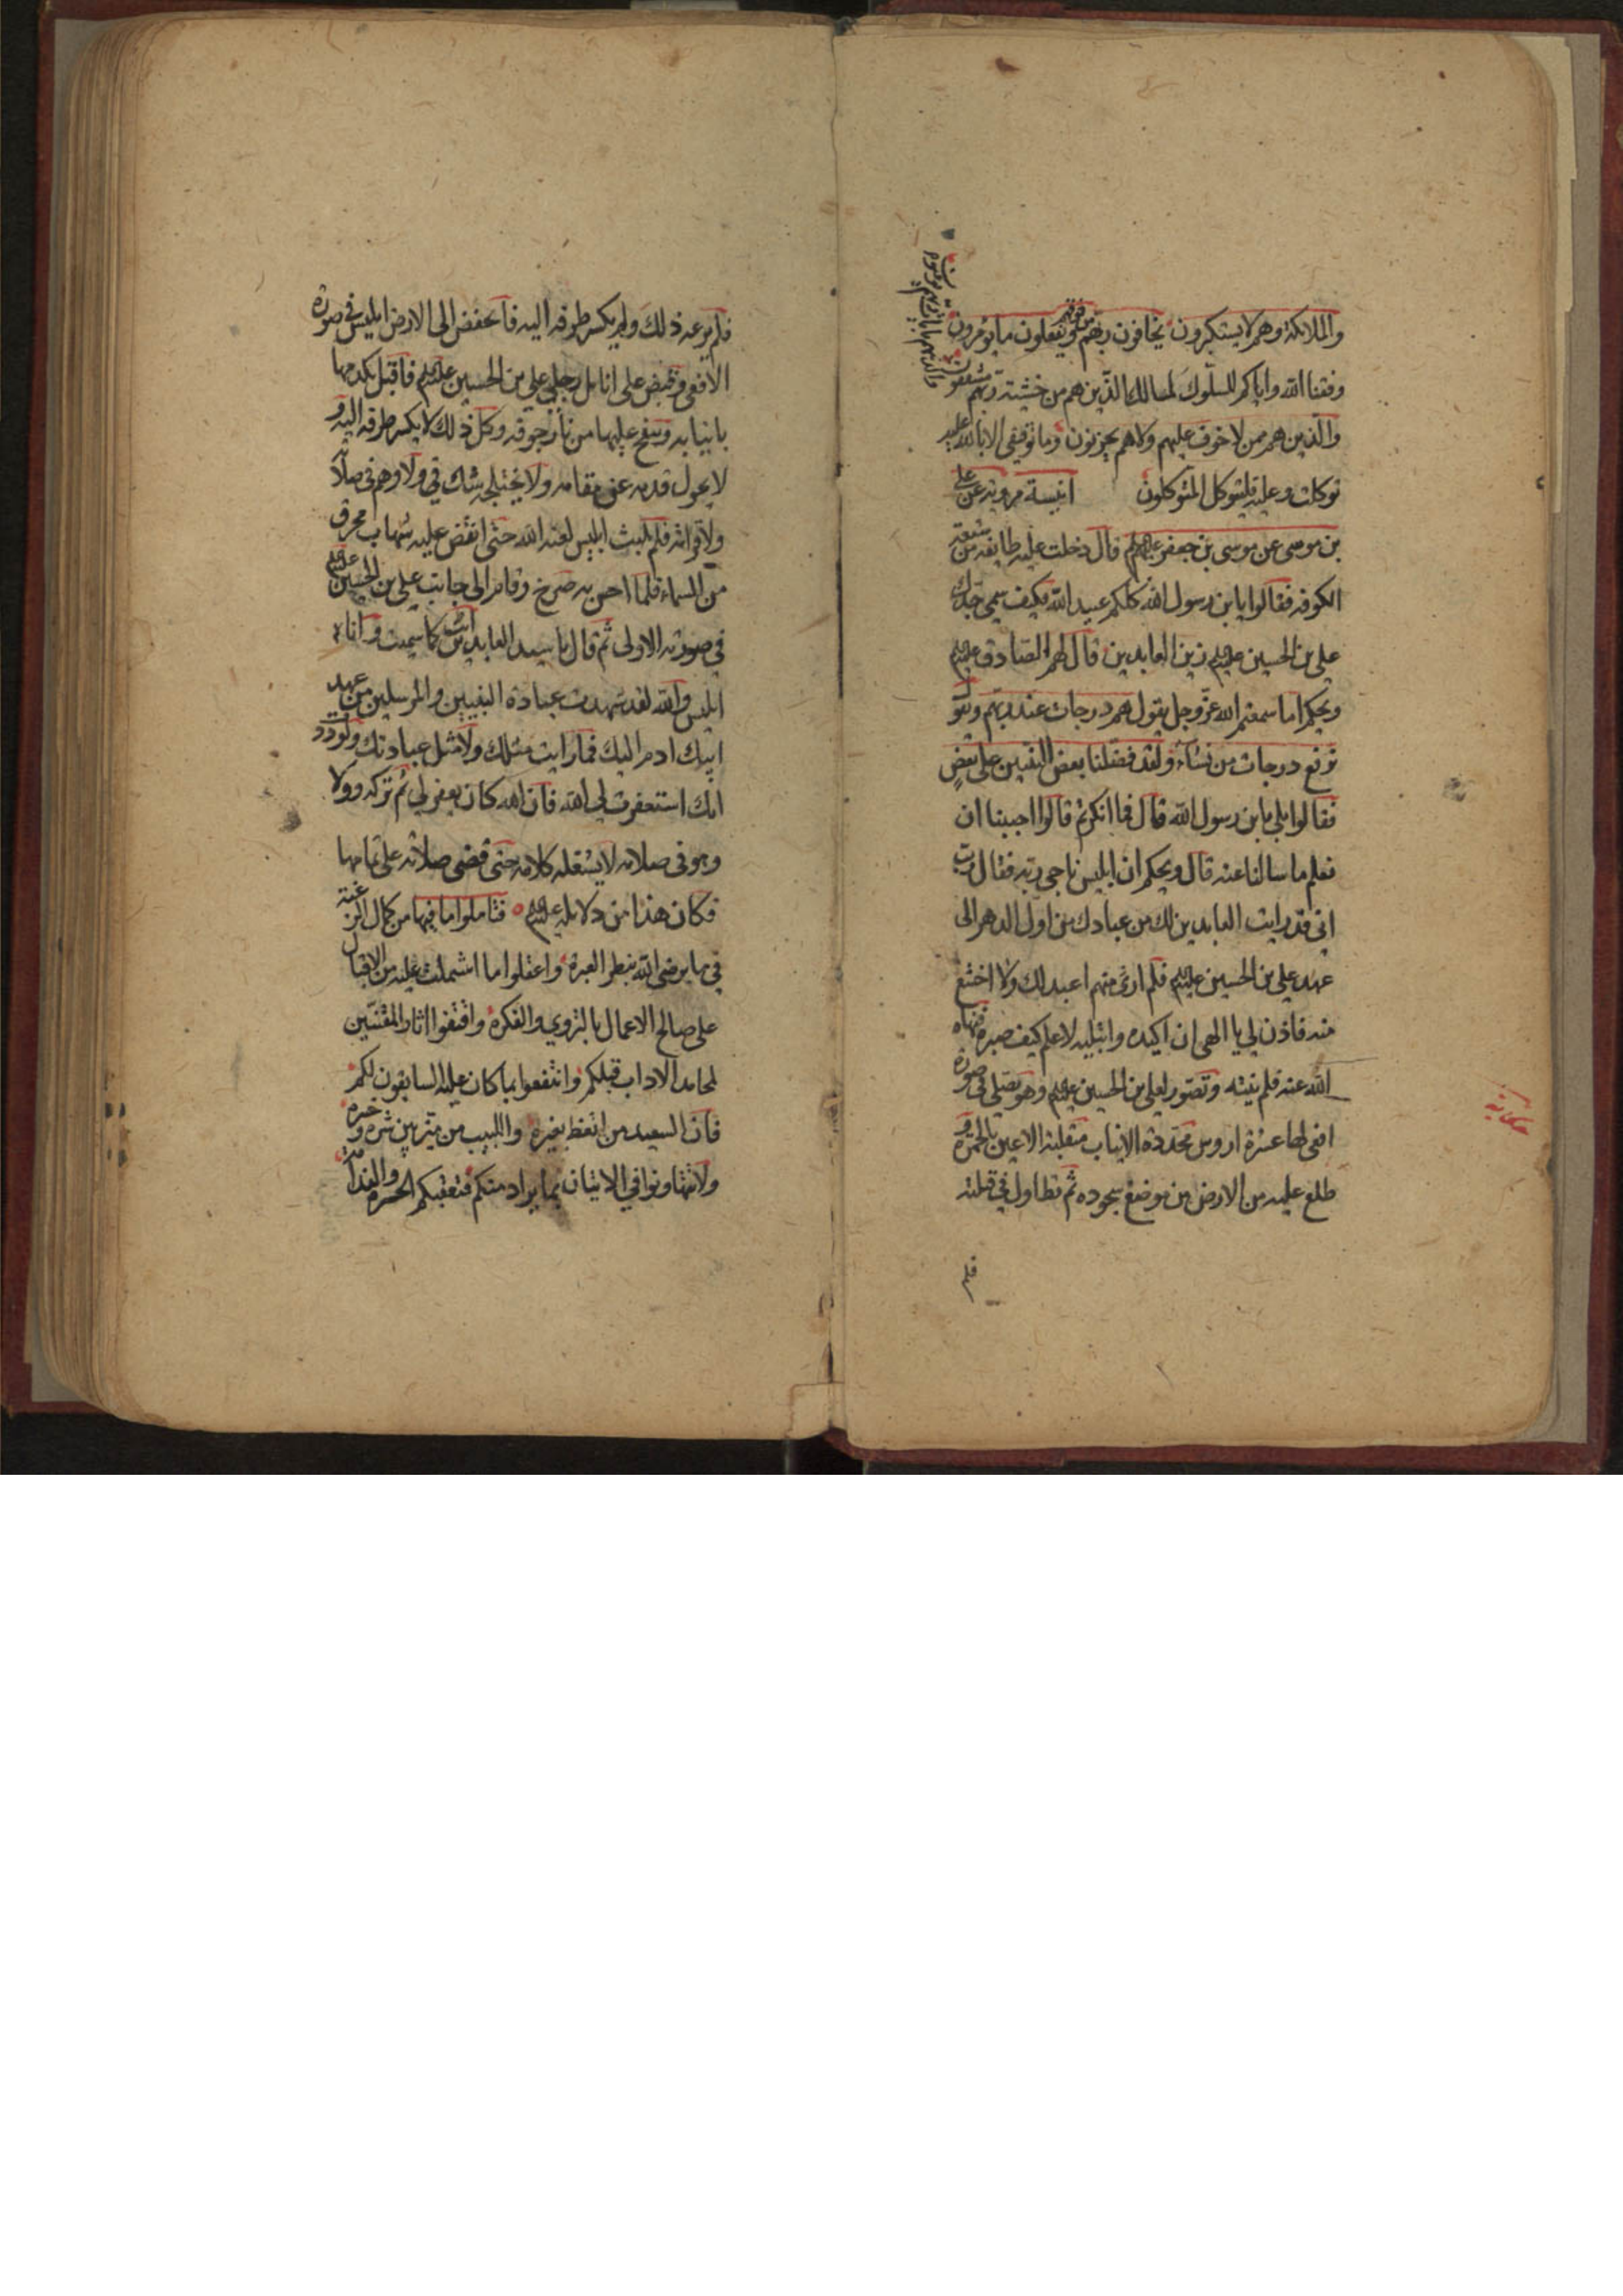 والملائكة وهم لا يستكبرون يخافون ربهم من فوقهم ويفعلون ما يؤمرون
وفقنا الله واياكم للسلوك لمسالك الذين هم من خشية ربهم مشفقون
والذين هم بايات ربهم يؤمنون
والذين هم ممن لا خوف عليهم ولا هم يحزنون وما توفيقي الا بالله عليه
توكلت وعليه فليتوكل المتوكلون انيسة مروية عن علي
بن موسى عن موسى بن جعفر عليهم قال دخلت عليه طايفة من شيعته
الكوفه فقالوا يا بن رسول الله كلكم عبيد الله فكيف سمي جدك
علي بن الحسين عليهم زين العابدين قال لهم الصادق عليهم
ويحكم اما سمعتم الله عز وجل يقول هم درجات عند ربهم ويقو
نرفع درجات من نشاء ولقد فضلنا بعض النبيين على بعض
فقالوا بلى يا بن رسول الله قال فما انكرتم قالوا احببنا ان
نعلم ما سالنا عنه قال ويحكم ان ابليس ناجى ربه فقال رب
اني قد رايت العابدين لك من عبادك من اول الدهر الى
عهد علي بن الحسين عليهم فلم ار منهم اعبد لك ولا اخشع
منه فاذن لي يا الهي ان اكيده وابتليه لاعلم كيف صبره فنهاه
الله عنه فلم ينته وتصور لعلي بن الحسين عليهم وهو يصلي في صورة
افعى لها عشرة اروس محددة الانياب منقلبة الاعين بالحمرة و
طلع عليه من الارض من موضع سجوده ثم تطاول في قبلته
فلم
فلم يرعه ذلك ولم يكسر طرفه اليه فانخفض الى الارض ابليس في صورة
الافعى وقبض على انامل رجلي علي بن الحسين عليهم فاقبل يكدمها
بانيابه وينفخ عليها من نار جوفه وكل ذلك لا يكسر طرفه اليه و
لا يحول قدمه عن مقامه ولا يختلجه شك ولا وهم في صلا
ولا قرائته فلم يلبث ابليس لعنه الله حتى انقض عليه شهاب محرق
من السماء فلما احس به صرخ وقام الى جانب علي بن الحسين عليهم
في صورته الاولى ثم قال يا سيد العابدين انت كما سميت وانا
ابليس والله لقد شهدت عبادة النبيين والمرسلين من عهد
ابيك ادم اليك فما رايت مثلك ولا مثل عبادتك ولوددت
انك استغفرت لي الله فان الله كان يغفر لي ثم تركه وولا
وهو في صلاته لا يشغله كلامه حتى قضى صلاته على تمامها
فكان هذا من دلايله عليهم فتاملوا ما فيها من كمال الرغبة
في ما يرضى الله بنظر العبرة واعقلوا ما اشتملت عليه من الاقبال
على صالح الاعمال بالتروي والفكرة واقتفوا اثار المقتنين
لمحامد الاداب قبلكم وانتفعوا بما كان عليه السابقون لكم
فان السعيد من اتعظ بغيره واللبيب من ميز بين شره وخيره
ولا تتهاونوا في الاتيان بما يراد منكم فتعقبكم الحسرة والندامة